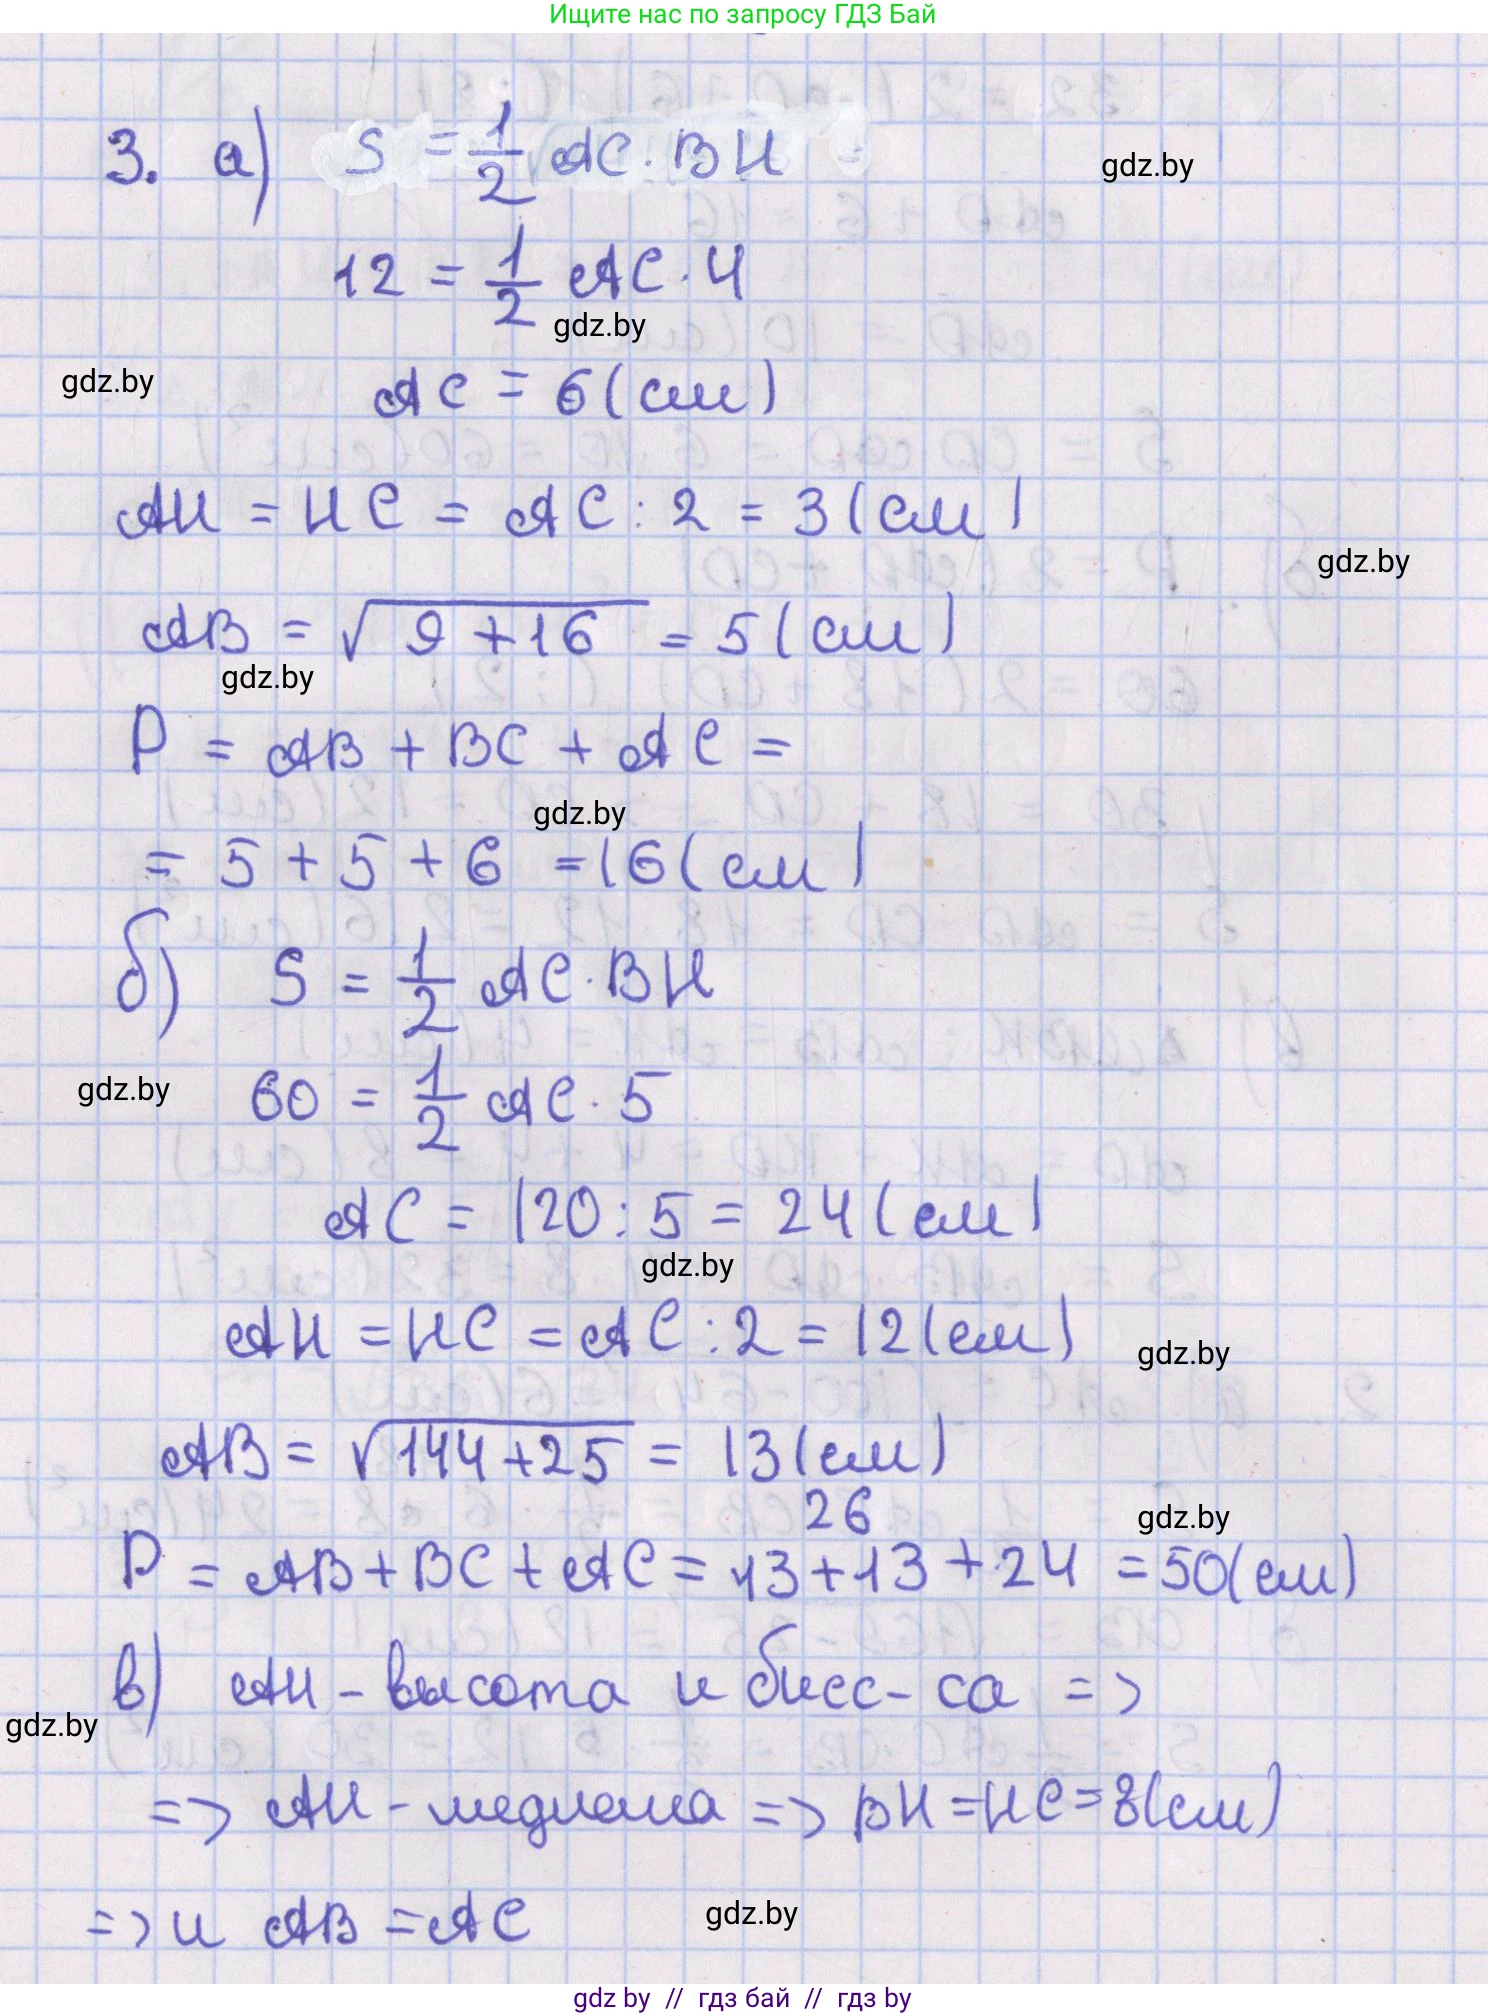 Ищите нас по запросу ГДЗ Бай
3. а) S = 1/2 AC · BH =
gdz.by
12 = 1/2 AC · 4
gdz.by
gdz.by
AC = 6 (см)
AH = HC = AC : 2 = 3 (см)
gdz.by
AB = √9 + 16 = 5 (см)
gdz.by
P = AB + BC + AC =
gdz.by
= 5 + 5 + 6 = 16 (см)
б) S = 1/2 AC · BH
gdz.by
60 = 1/2 AC · 5
AC = 120 : 5 = 24 (см)
gdz.by
AH = HC = AC : 2 = 12 (см)
gdz.by
AB = √144 + 25 = 13 (см)
26
gdz.by
P = AB + BC + AC = 13 + 13 + 24 = 50 (см)
в) AH - высота и бисс-са =>
gdz.by
=> AH - медиана => BH = HC = 8 (см)
=> и AB = AC
gdz.by
gdz by // гдз бай // гдз by